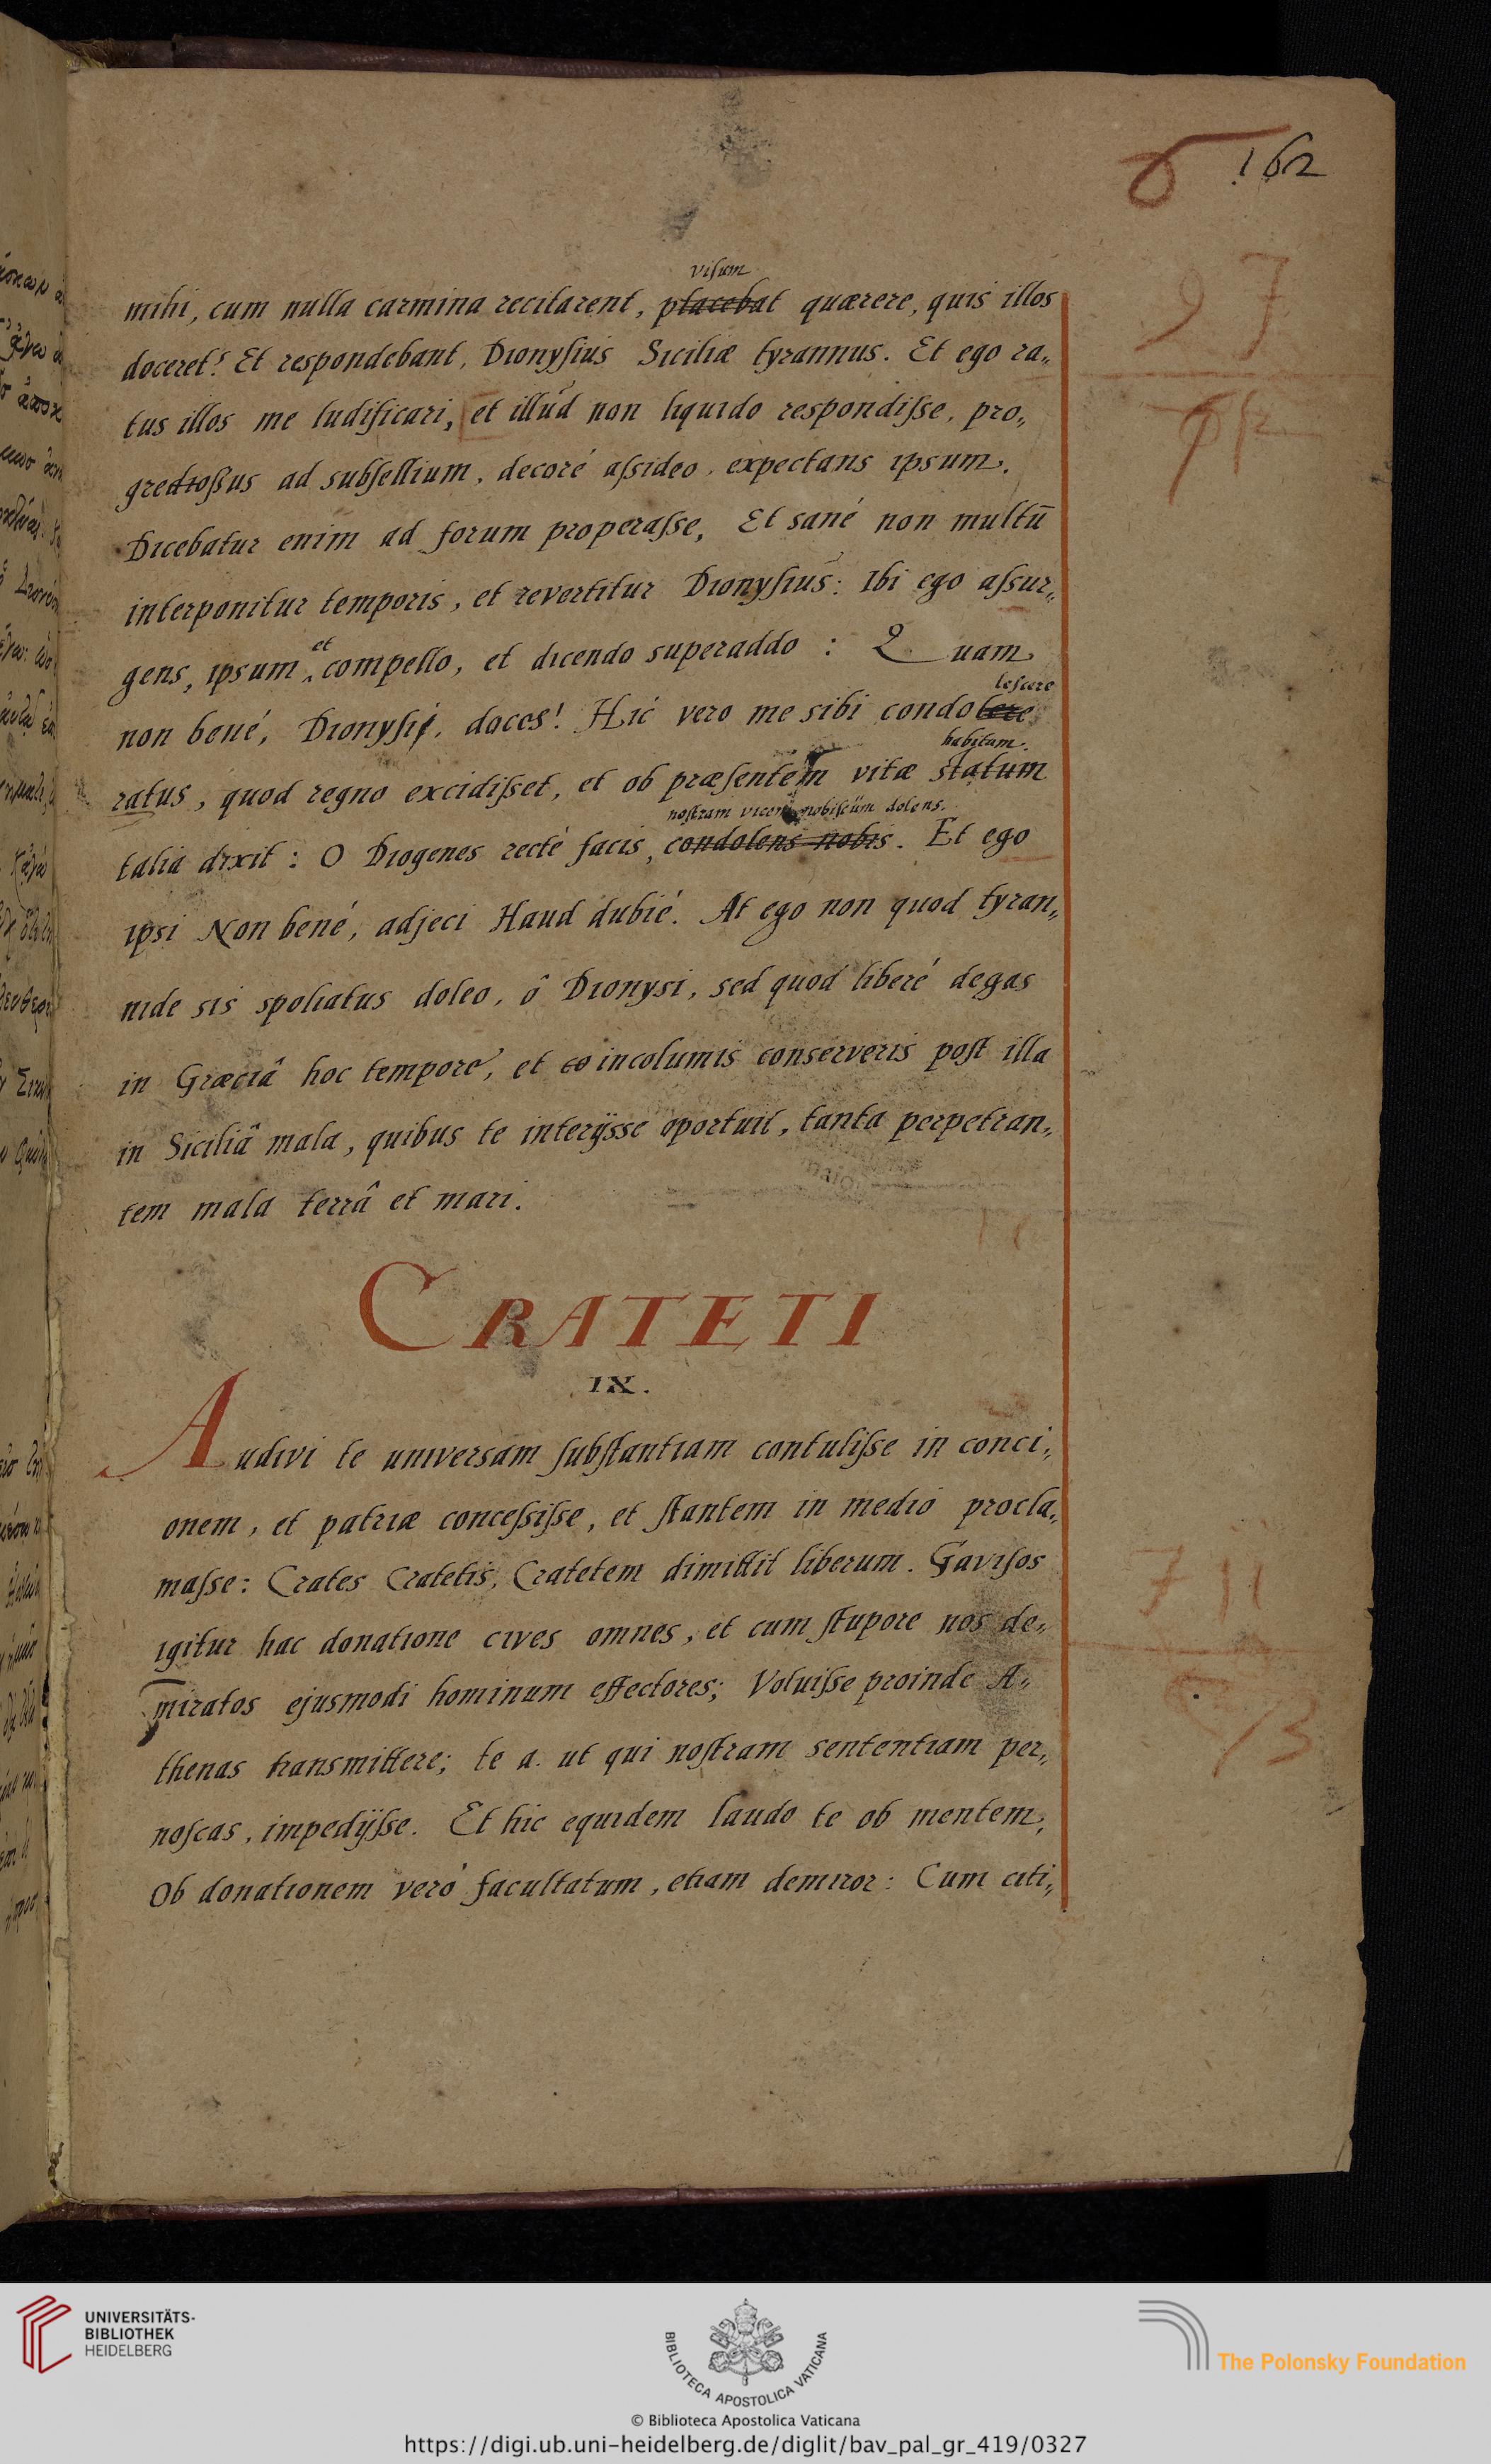 162
97
visum
mihi, cum nulla carmina recitarent, placebat quærere, quis illos
doceret? Et respondebant, Dionysius Siciliæ tyrannus. Et ego ra„
tus illos me ludificari, et illud non liquido respondisse, pro„
ad subsellium, decoré assideo, expectans ipsum.
Dicebatur enim ad forum properasse, Et sané non multū
interponitur temporis, et revertitur Dionysius: Ibi ego assur„
et
gens, ipsum, compello, et dicendo superaddo : Quam
lescere
non bené, Dionysi, doces! Hic vero me sibi condolere
habitum.
ratus, quod regno excidisset, et ob præsentem vitæ statum
nostram vicem nobiscum dolens.
talia dixit : O Diogenes recté facis, condolens nobis. Et ego
ipsi Non bené, adjeci Haud dubié. At ego non quod tyran„
nide sis spoliatus doleo, ô Dionysi, sed quod liberé degas
in Græciâ hoc tempore, et co incolumis conserveris post illa
in Siciliâ mala, quibus te interijsse oportuit, tanta perpetran„
tem mala terrâ et mari.
CRATETI
IX.
Audivi te universam substantiam contulisse in conci„
onem, et patriæ concessisse, et stantem in medio procla„
masse: Crates Cratetis, Cratetem dimittit liberum. Gavisos
igitur hac donatione cives omnes, et cum stupore nos de„
miratos ejusmodi hominum effectores; Voluisse proinde A„
thenas transmittere; te a. ut qui nostram sententiam per„
noscas, impedijsse. Et hic equidem laudo te ob mentem,
Ob donationem veró facultatum, etiam demiror: Cum citi„
711
UNIVERSITÄTS-
BIBLIOTHEK
HEIDELBERG
BIBLIOTECA APOSTOLICA VATICANA
The Polonsky Foundation
© Biblioteca Apostolica Vaticana
https://digi.ub.uni-heidelberg.de/diglit/bav_pal_gr_419/0327